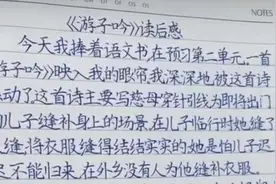 NOTES
《《游子吟》读后感
今天我捧着语文书,在预习第二单元,一首
游子吟》映入我的眼帘,我深深地被这首
动了,这首诗主要写慈母穿针引线为即将出门
儿子缝补身上的场景,在儿子临行时她缝了
缝,将衣服缝得结结实实的她是怕儿子迟
不能归来,在外乡没有人为他缝补衣服。